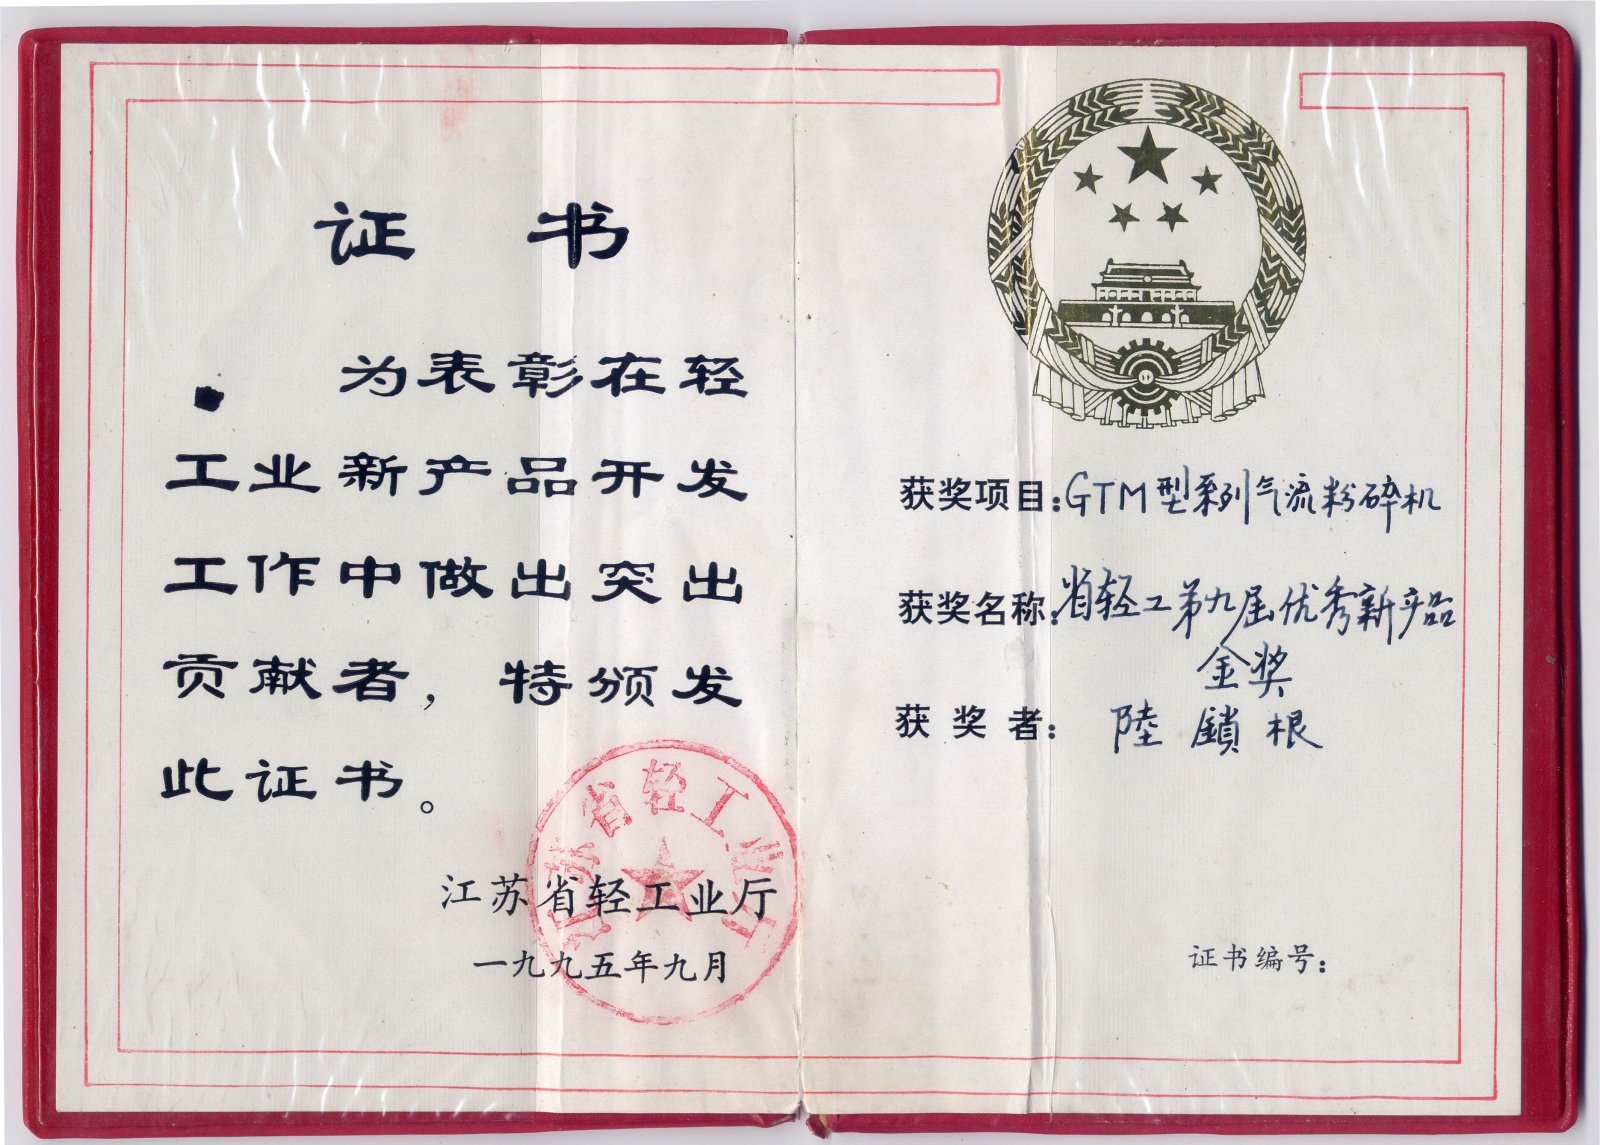 证书
为表彰在轻
工业新产品开发
工作中做出突出
贡献者，特颁发
此证书。
江苏省轻工业厅
一九九五年九月
江苏省轻工业厅
获奖项目：GTM型系列气流粉碎机
获奖名称：省轻工第九届优秀新产品
金奖
获奖者：陸鎖根
证书编号：